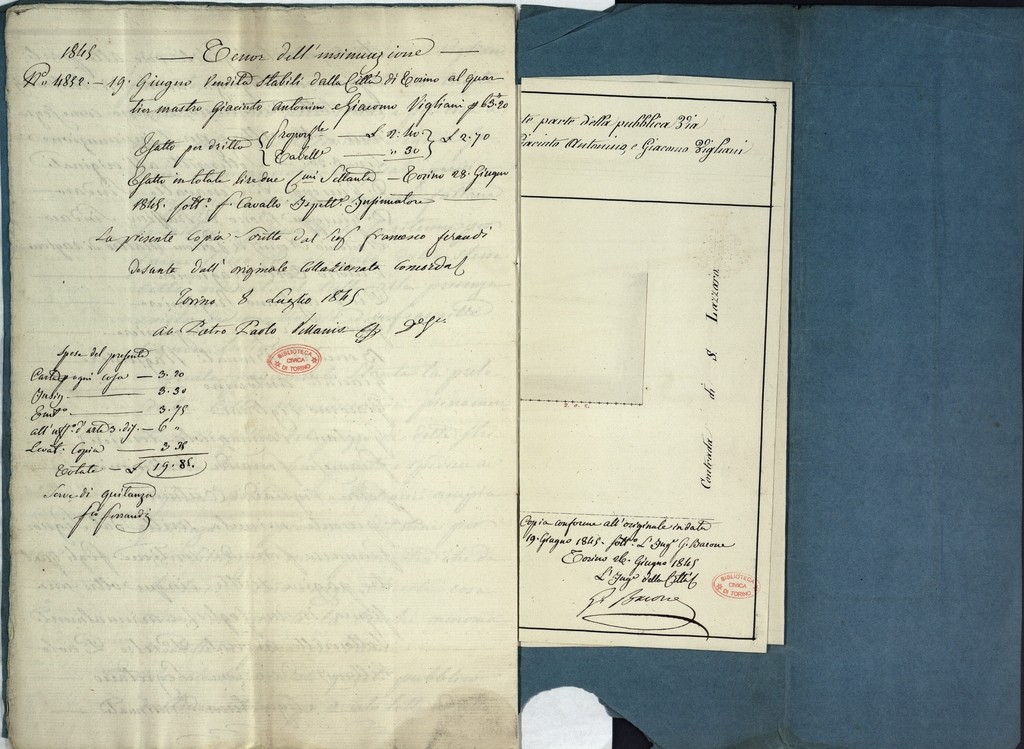 1845 — Tenor dell'insinuazione —
N.° 4852. — 19. Giugno Vendita stabili dalla Città di Torino al quar
tier mastro Giacinto Antonino e Giacomo Vigliani 63.20
Esatto per dritto { Propor.le — L 2.40 } L 2.70
Tabell.e — " 30
Esatto in totale lire due C.mi Settanta — Torino 28. Giugno
1845. sott.° f. Cavallo Insinuatore —
La presente Copia scritta dal Sig.r Francesco ferandi
desunta dall'originale Collazionata Concorda
Torino 8 Luglio 1845
Pietro Paolo
Spese del presente
Carta ogni cosa — 3. 20
Insin. — 3. 30
— 3. 75
all'uff.° d'arte 3. — 6 "
Leval. Copia —
Totale — L 19. 85.
Serve di quitanza
ferrandi
te parte della pubblica Via
Giacinto Antonino, e Giacomo Vigliani
Contrada di S. Lazzaro
Copia conforme all'originale in data
19. Giugno 1845. sott.° L'Ing.e G. Barone
Torino 26. Giugno 1845
L'Ing.e della Città
G. Barone
BIBLIOTECA
CIVICA
DI TORINO
BIBLIOTECA
CIVICA
DI TORINO